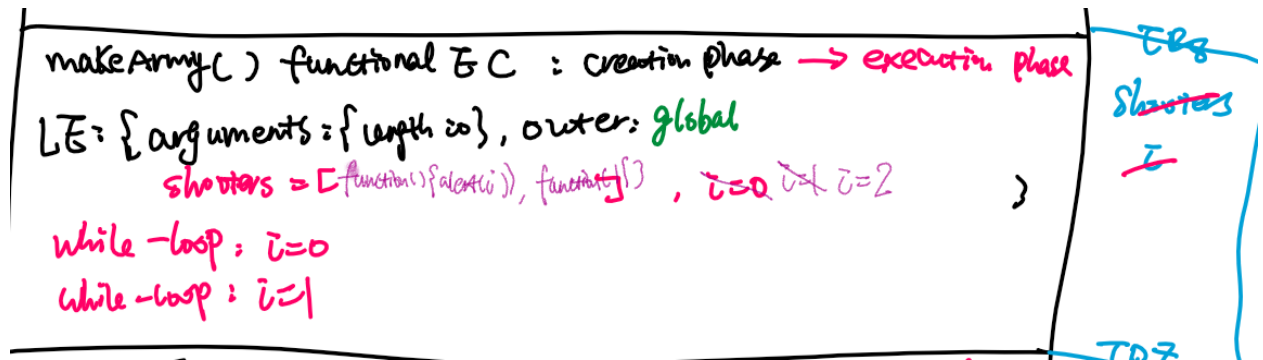 makeArmy() functional EC : creation phase → execution phase
LE: {arguments: {length: 0}, outer: global
shooters = [function(){alert(i)}, function(){}] , i=0 i=1 i=2 }
while-loop: i=0
while-loop: i=1
TDZ
shooters
i
TDZ